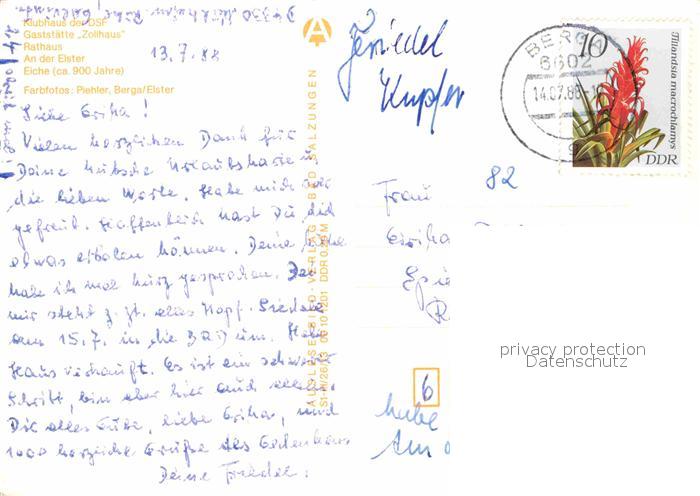 Klubhaus der DSF
Gaststätte „Zollhaus"
Rathaus
An der Elster
Eiche (ca. 900 Jahre)
Farbfotos: Piehler, Berga/Elster
13.7.88
Liebe Erika!
Vielen herzlichen Dank für
Deine hübsche Urlaubskarte u.
die lieben Worte. Habe mich sehr
gefreut. Hoffentlich hast Du dich
etwas erholen können. Deine
habe ich mal kurz gesprochen. Bei
mir steht z. Zt. alles Kopf. Siedle
am 15.7. in die BRD um. Habe
Haus verkauft. Es ist ein schwerer
Schritt, bin aber hier auch allein.
Dir alles Gute, liebe Erika, und
1000 herzliche Grüße des Gedenkens
Deine Friedel.
AUSLESE-BILD-VERLAG BAD SALZUNGEN
DDR
Friedel
Kupfer
BERGA
6602
14.07.88
10
Tillandsia macrochlamys
DDR
82
Frau
Erika
6
Am
privacy protection
Datenschutz